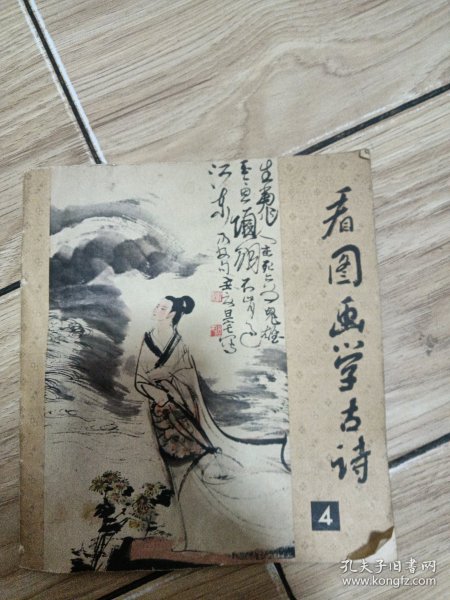 看图画学古诗
4
生當作人杰死亦为鬼雄
至今思項羽不肯过
江东
孔夫子旧书网
www.kongfz.com